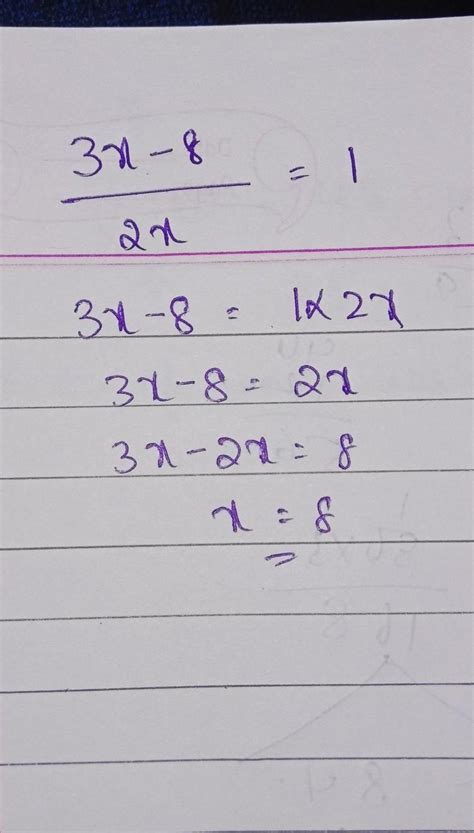 3x-8
2x
= 1
3x-8 = 1x 2x
3x-8 = 2x
3x-2x = 8
x = 8